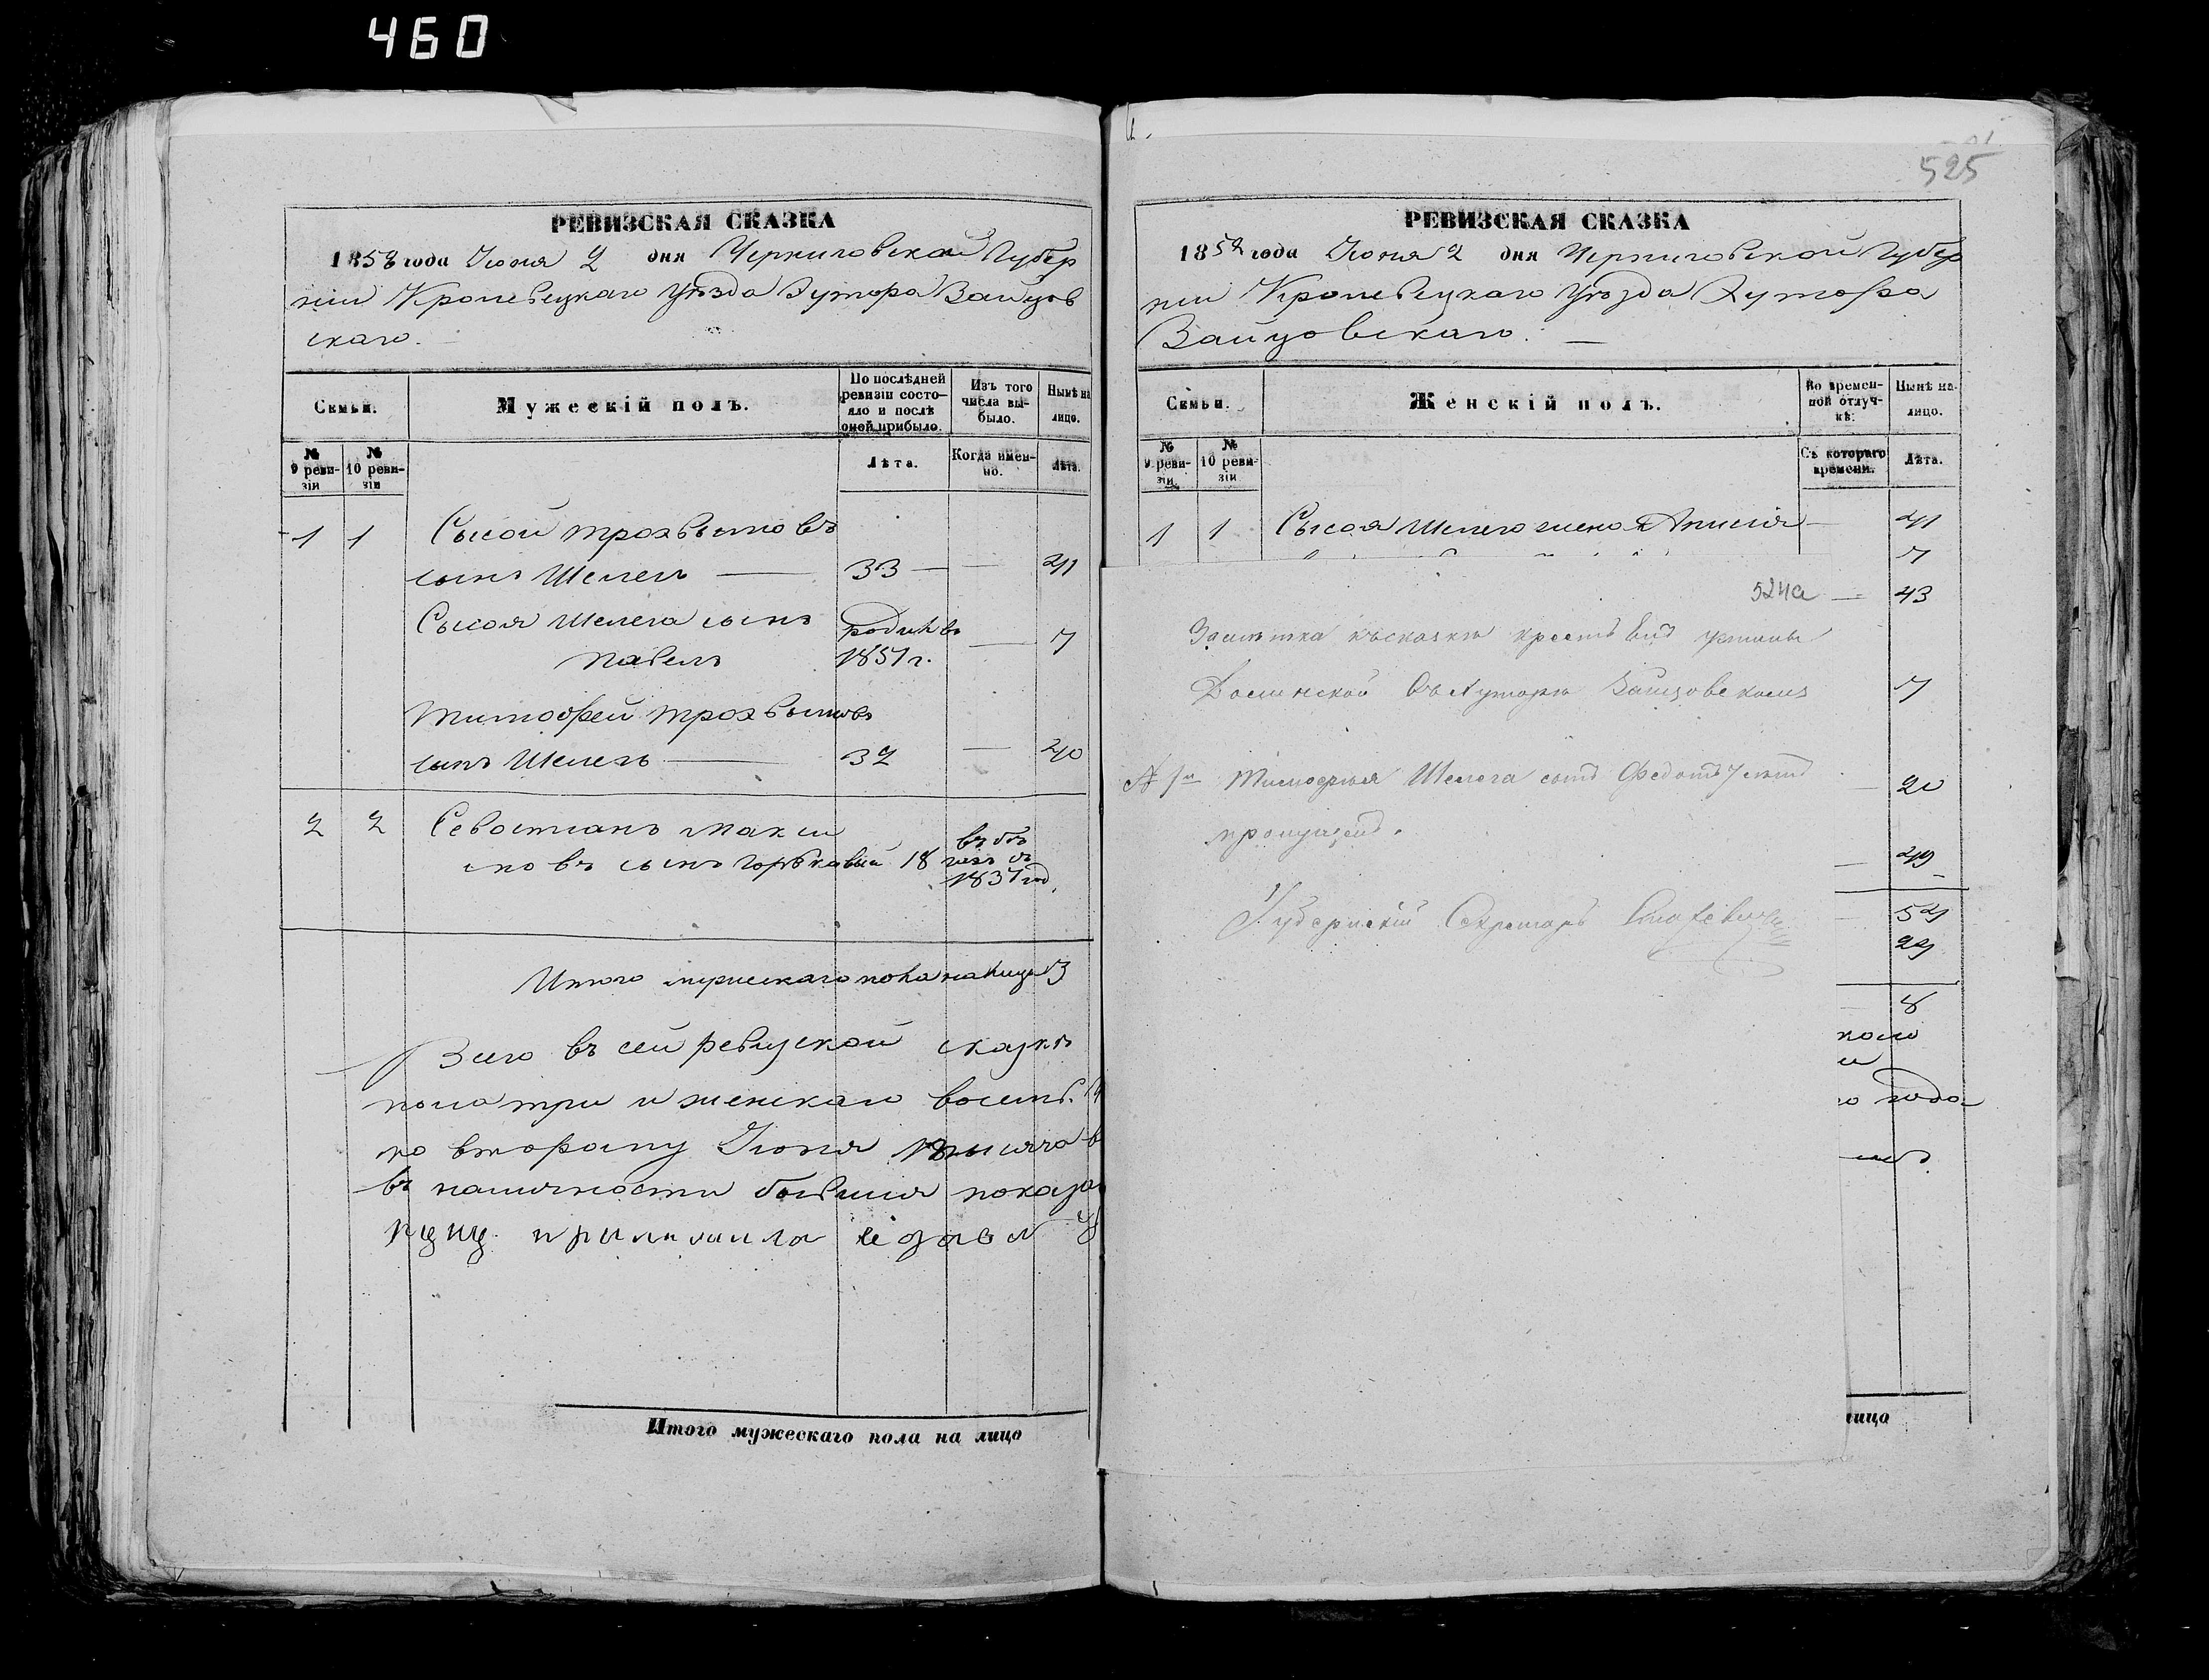 460
РЕВИЗСКАЯ СКАЗКА
1858 года Іюня 2 дня Черниговской Губер
ніи Кролевецкаго уѣзда Хутора Зайцов
скаго.
Семьи.
Мужескій полъ.
По послѣдней ревизіи состо-
яло и послѣ
оной прибыло.
Изъ того
числа вы-
было.
Нынѣ на
лицо.
№
9 реви-
зіи
№
10 реви-
зіи
Лѣта.
Когда имен-
но.
Лѣта.
1 1 Сысой Трохвимовъ
сынъ Шелегъ — 33 — — 41
Сысоя Шелега сынъ
Павелъ
родил въ
1851 г. — 7
Тимофей Трохвимовъ
сынъ Шелегъ — 32 — 40
2 2 Севостіанъ Макси
мовъ сынъ 18
въ бѣ
гахъ съ
1851 год.
Итого мужескаго пола на лицо 3
Всего въ сей ревизской сказкѣ
пола три и женскаго восемь.
по второму Іюня тысяча в
въ наличности бывшія показа
Итого мужескаго пола на лицо
525
РЕВИЗСКАЯ СКАЗКА
1858 года Іюня 2 дня Черниговской Губер
ніи Кролевецкаго уѣзда Хутора
Зайцовскаго. —
Семьи.
Женскій полъ.
Во времен-
ной отлуч-
кѣ.
Нынѣ на-
лицо.
№
9 реви-
зіи
№
10 реви-
зіи
Съ котораго
времени.
Лѣта.
1 1 Сысоя Шелега жена — 41
7
524а — 43
Замѣтка къ сказкѣ
въ Хуторѣ Зайцовскомъ 7
Тимофея Шелега сынъ Федотъ 7 лѣтъ — 20
пропущенъ.
— 49
Губернскій Секретарь — 54
24
8
и
о года
лицо